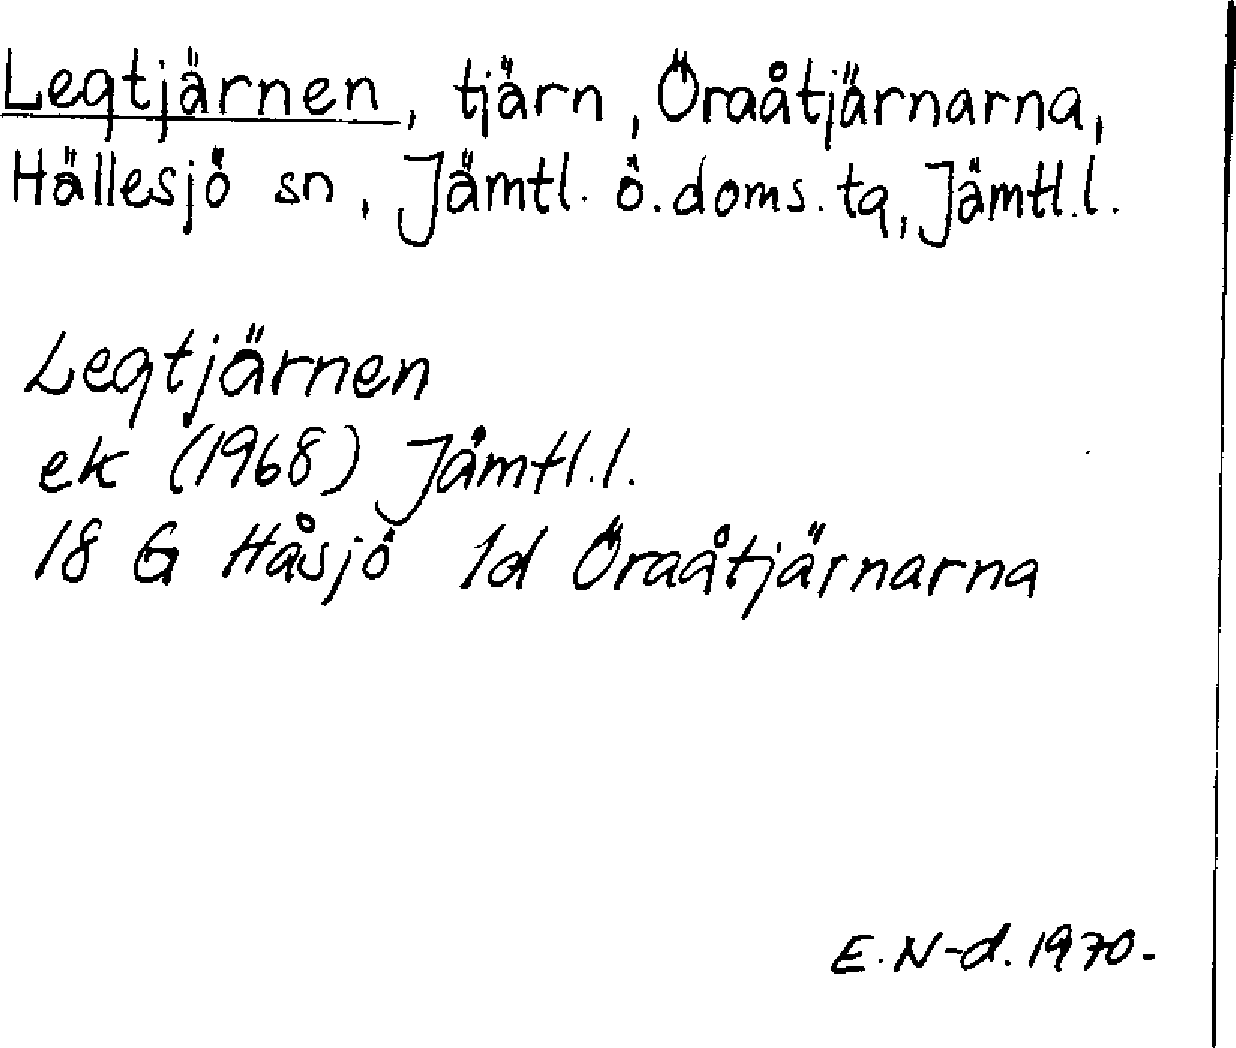 Legtjärnen, tjärn, Öraåtjärnarna,
Hällesjö sn, Jämtl. ö. doms. tg, Jämtl.l.
Legtjärnen
ek (1968) Jämtl.l.
18 G Håsjö 1d Öraåtjärnarna
E. N-d. 1970-